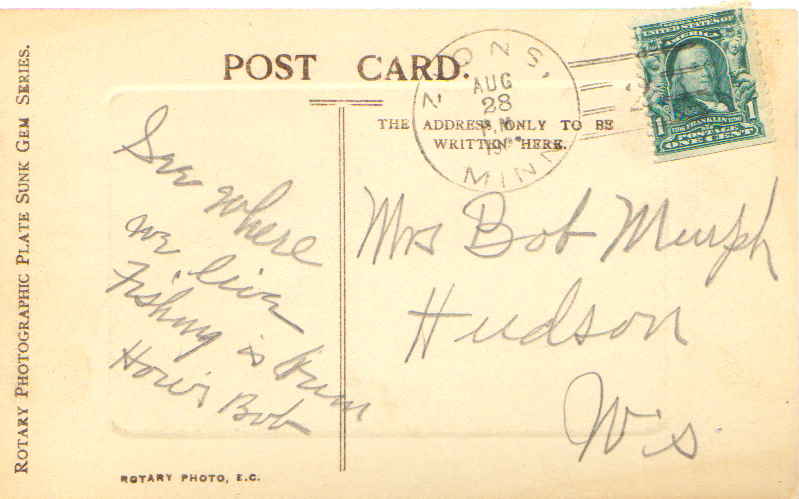 ROTARY PHOTOGRAPHIC PLATE SUNK GEM SERIES.
POST CARD.
THE ADDRESS ONLY TO BE
WRITTEN HERE.
AUG
28
P.M.
MINN
UNITED STATES OF
AMERICA
1 1
FRANKLIN
POSTAGE
ONE CENT
See where
we live
Fishing is bum
How's Bob
Mrs Bob Murph
Hudson
Wis
ROTARY PHOTO, E.C.